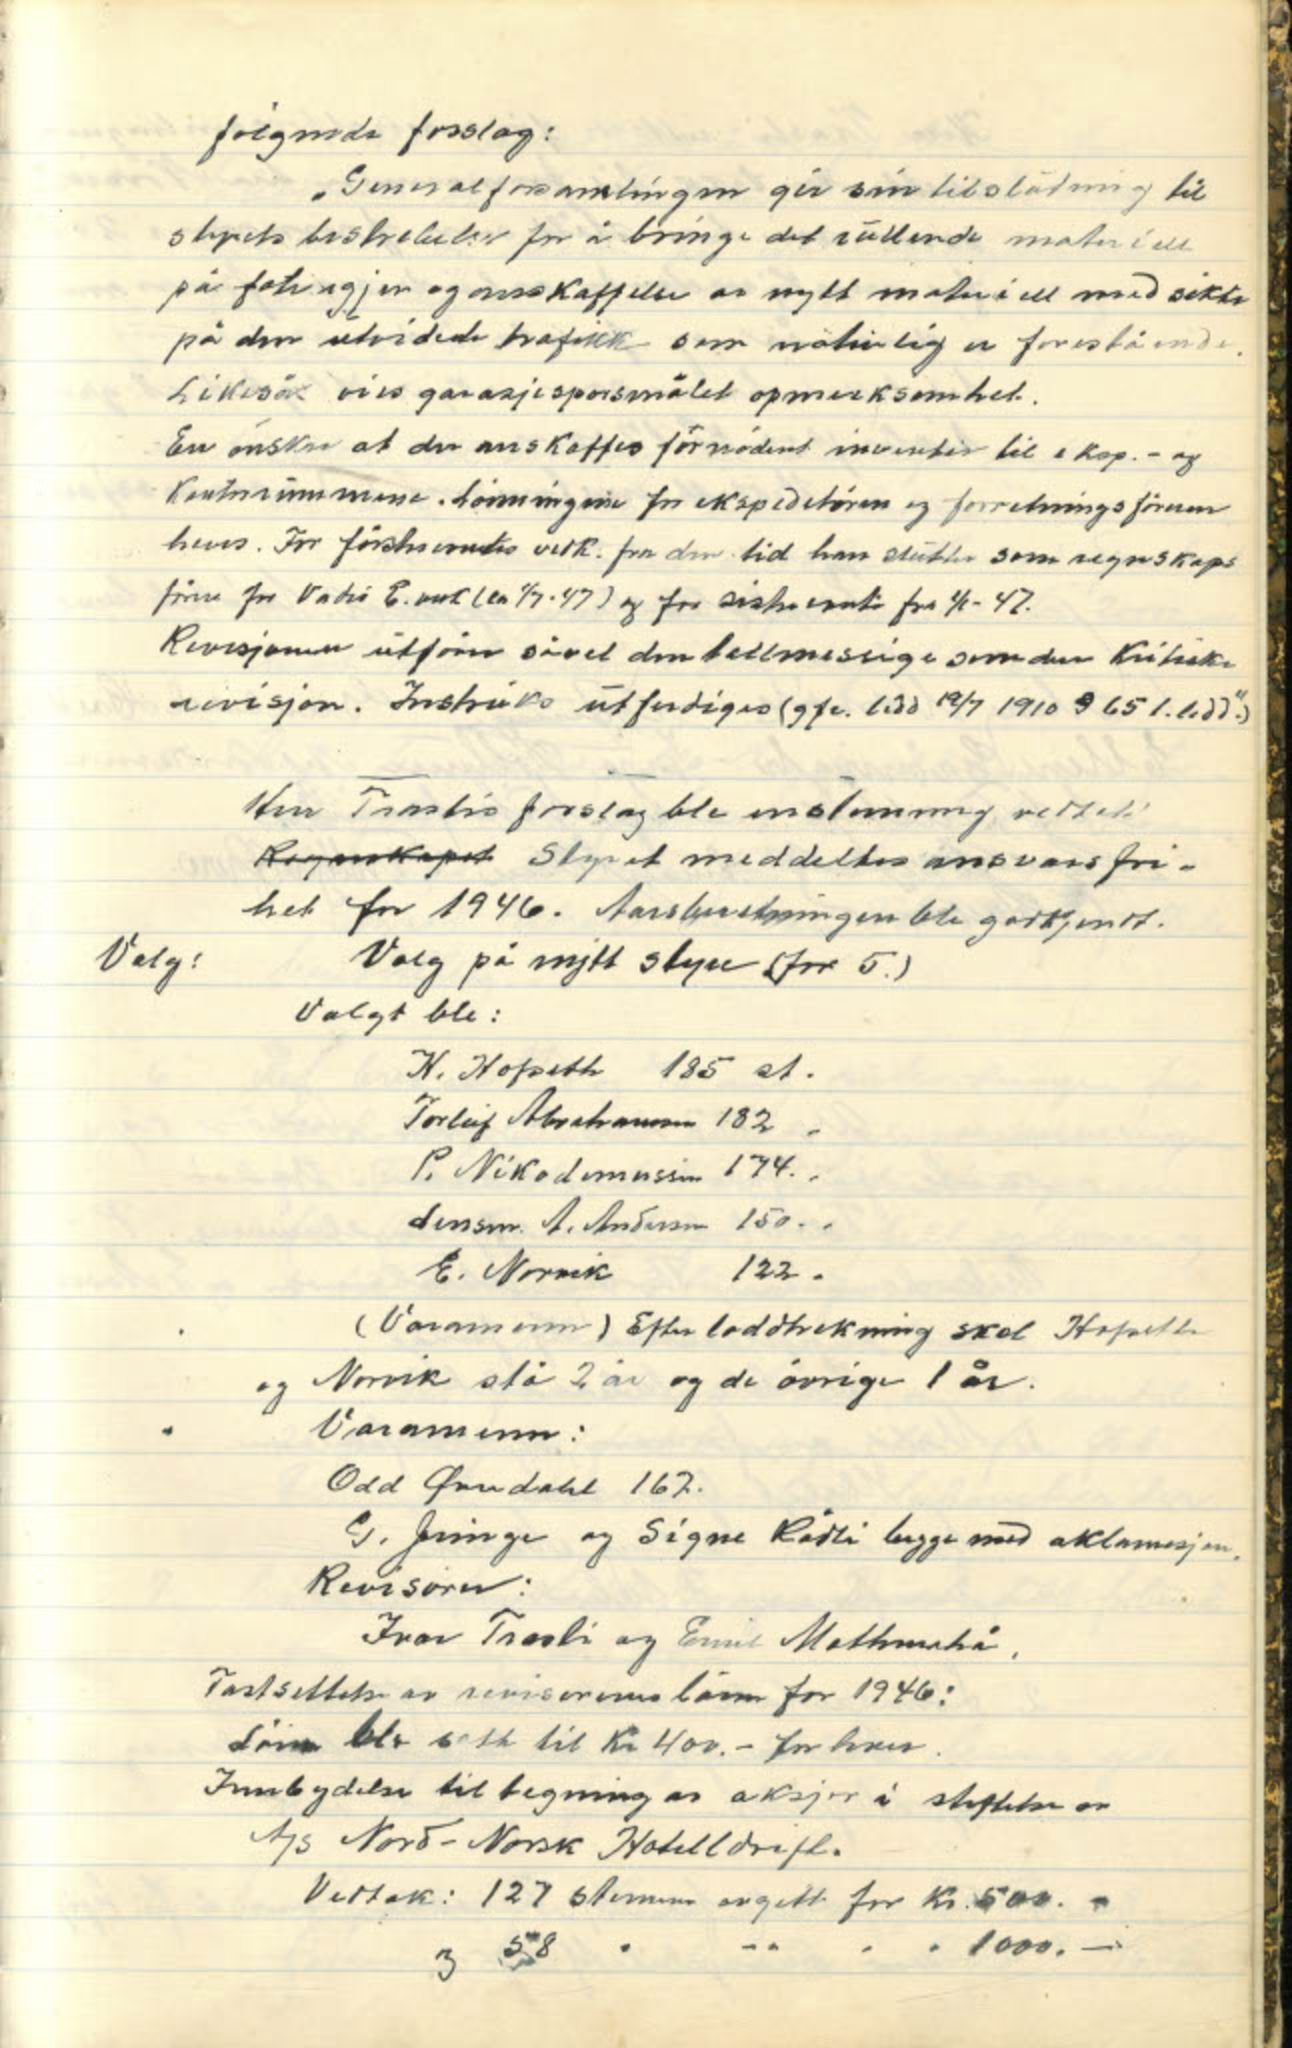 følgende forslag:
„Generalforsamlingen gir sin tilslutning til
styrets bestrebelser for å bringe det rullende materiell
på fote igjen og anskaffelse av nytt materiell med sikte
på den utvidede trafikk som naturlig er forestående.
Likeså vies garasjespørsmålet opmerksomhet.
En ønsker at der anskaffes fornødent inventar til eksp.- og
kontorrummene. Lønningene for ekspeditøren og forretningsføreren
heves. For førstnevntes vedk. fra den tid han slutter som regnskaps
fører for Vadsø E.verk (ca 1/7-47) og for sistnevnte fra 1/1-47.
Revisjonen utfører såvel den tallmessige som den kritiske
revisjon. Instruks utferdiges (gfr. 19/7 1910 § 65 1. ledd")
Herr Trasti's forslag ble enstemmig vedtatt
Regnskapet Styret meddeltes ansvarsfri-
het for 1946. Aarsberetningen ble godkjendt.
Valg: Valg på nytt styre (for 5.)
Valgt ble:
H. Hopseth 185 st.
Torleif Abrahamsen 182 „
P. Nikodemussen 174. „
Lensm. A. Andersen 150. „
E. Norvik 122 „
(Varamenn) Efter loddtrekning skal Hopseth
og Norvik stå 2 år og de øvrige 1 år.
Varamenn:
Odd 162.
G. og Signe begge med aklamasjon.
Revisorer:
Ivar Trasti og Emil
Fastsettelse av revisorenes lønn for 1946:
Lønn ble satt til Kr 400.- for hver.
Innbydelse til tegning av aksjer i stiftelse av
A/S Nord-Norsk Hotelldrift.
Vedtak: 127 stemmer avgitt for Kr. 500. -
58 „ -„- „ „ 1000. -
3